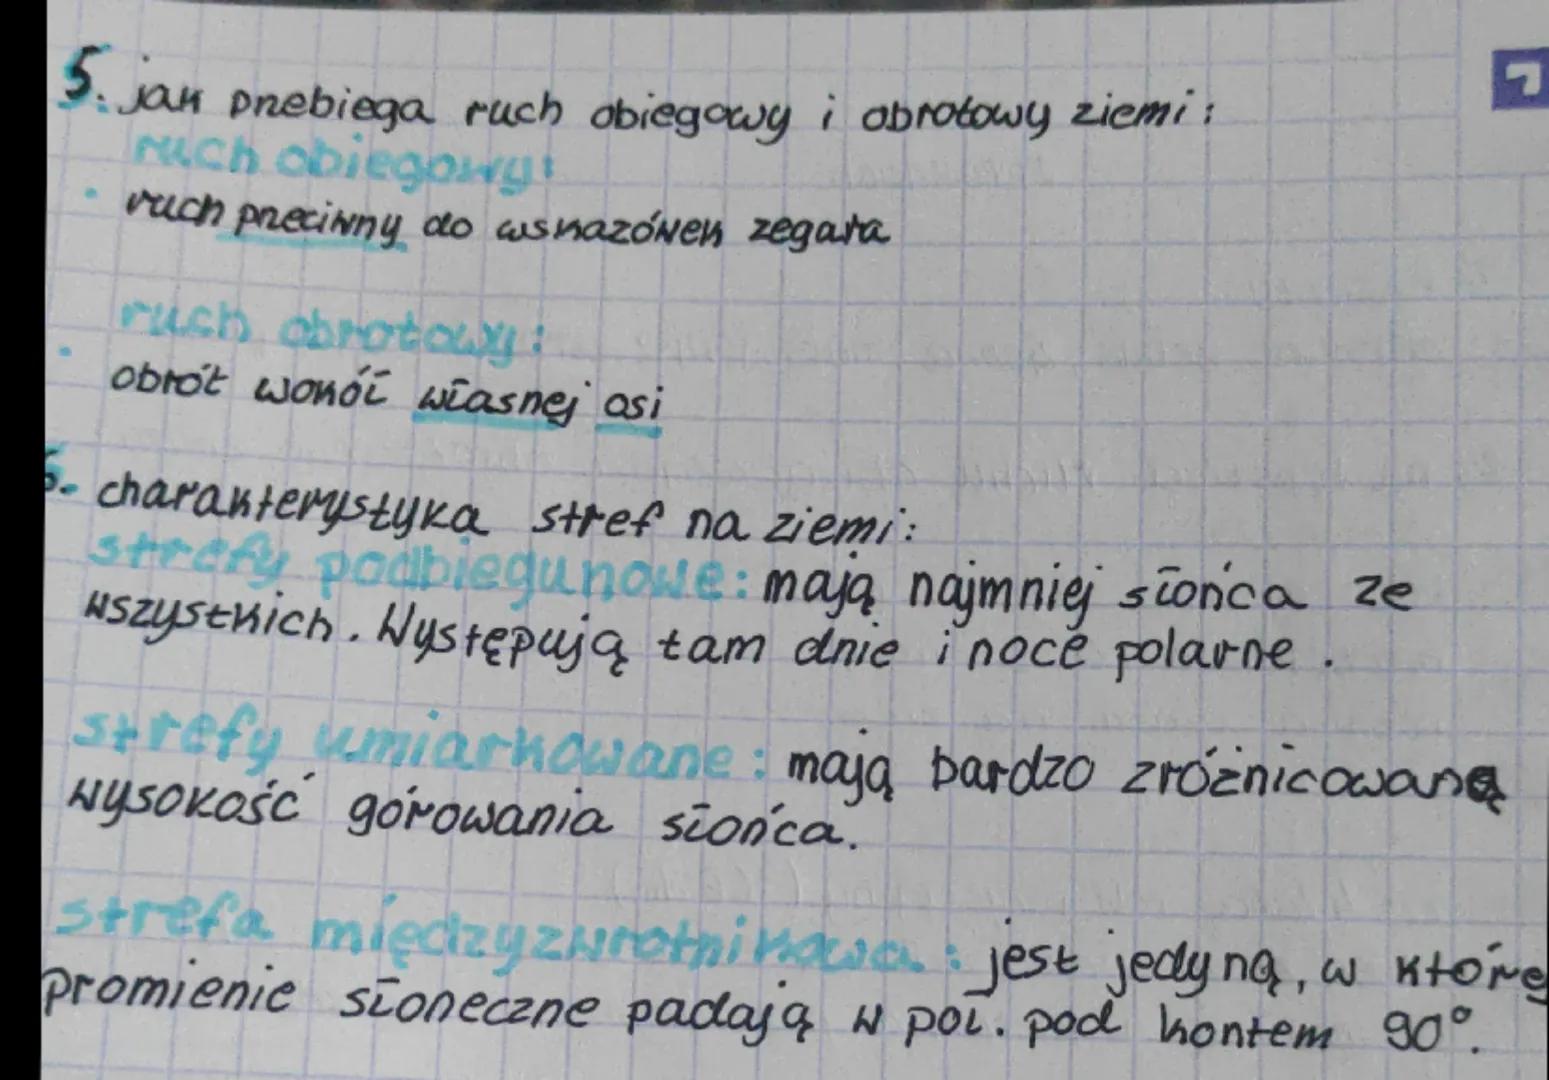 5. jak przebiega ruch obiegowy i obrotowy ziemi:
ruch obiegowy:
• ruch przeciwny do wskazówek zegara
ruch obrotowy:
• obrót wokół własnej osi
6. charakterystyka stref na ziemi:
strefy podbiegunowe: mają najmniej słońca ze
wszystkich. Występują tam dnie i noce polarne.
strefy umiarkowane: mają bardzo zróżnicowaną
wysokość górowania słońca.
strefa międzyzwrotnikowa: jest jedyną, w które
promienie słoneczne padają w poł. pod kontem 90°.